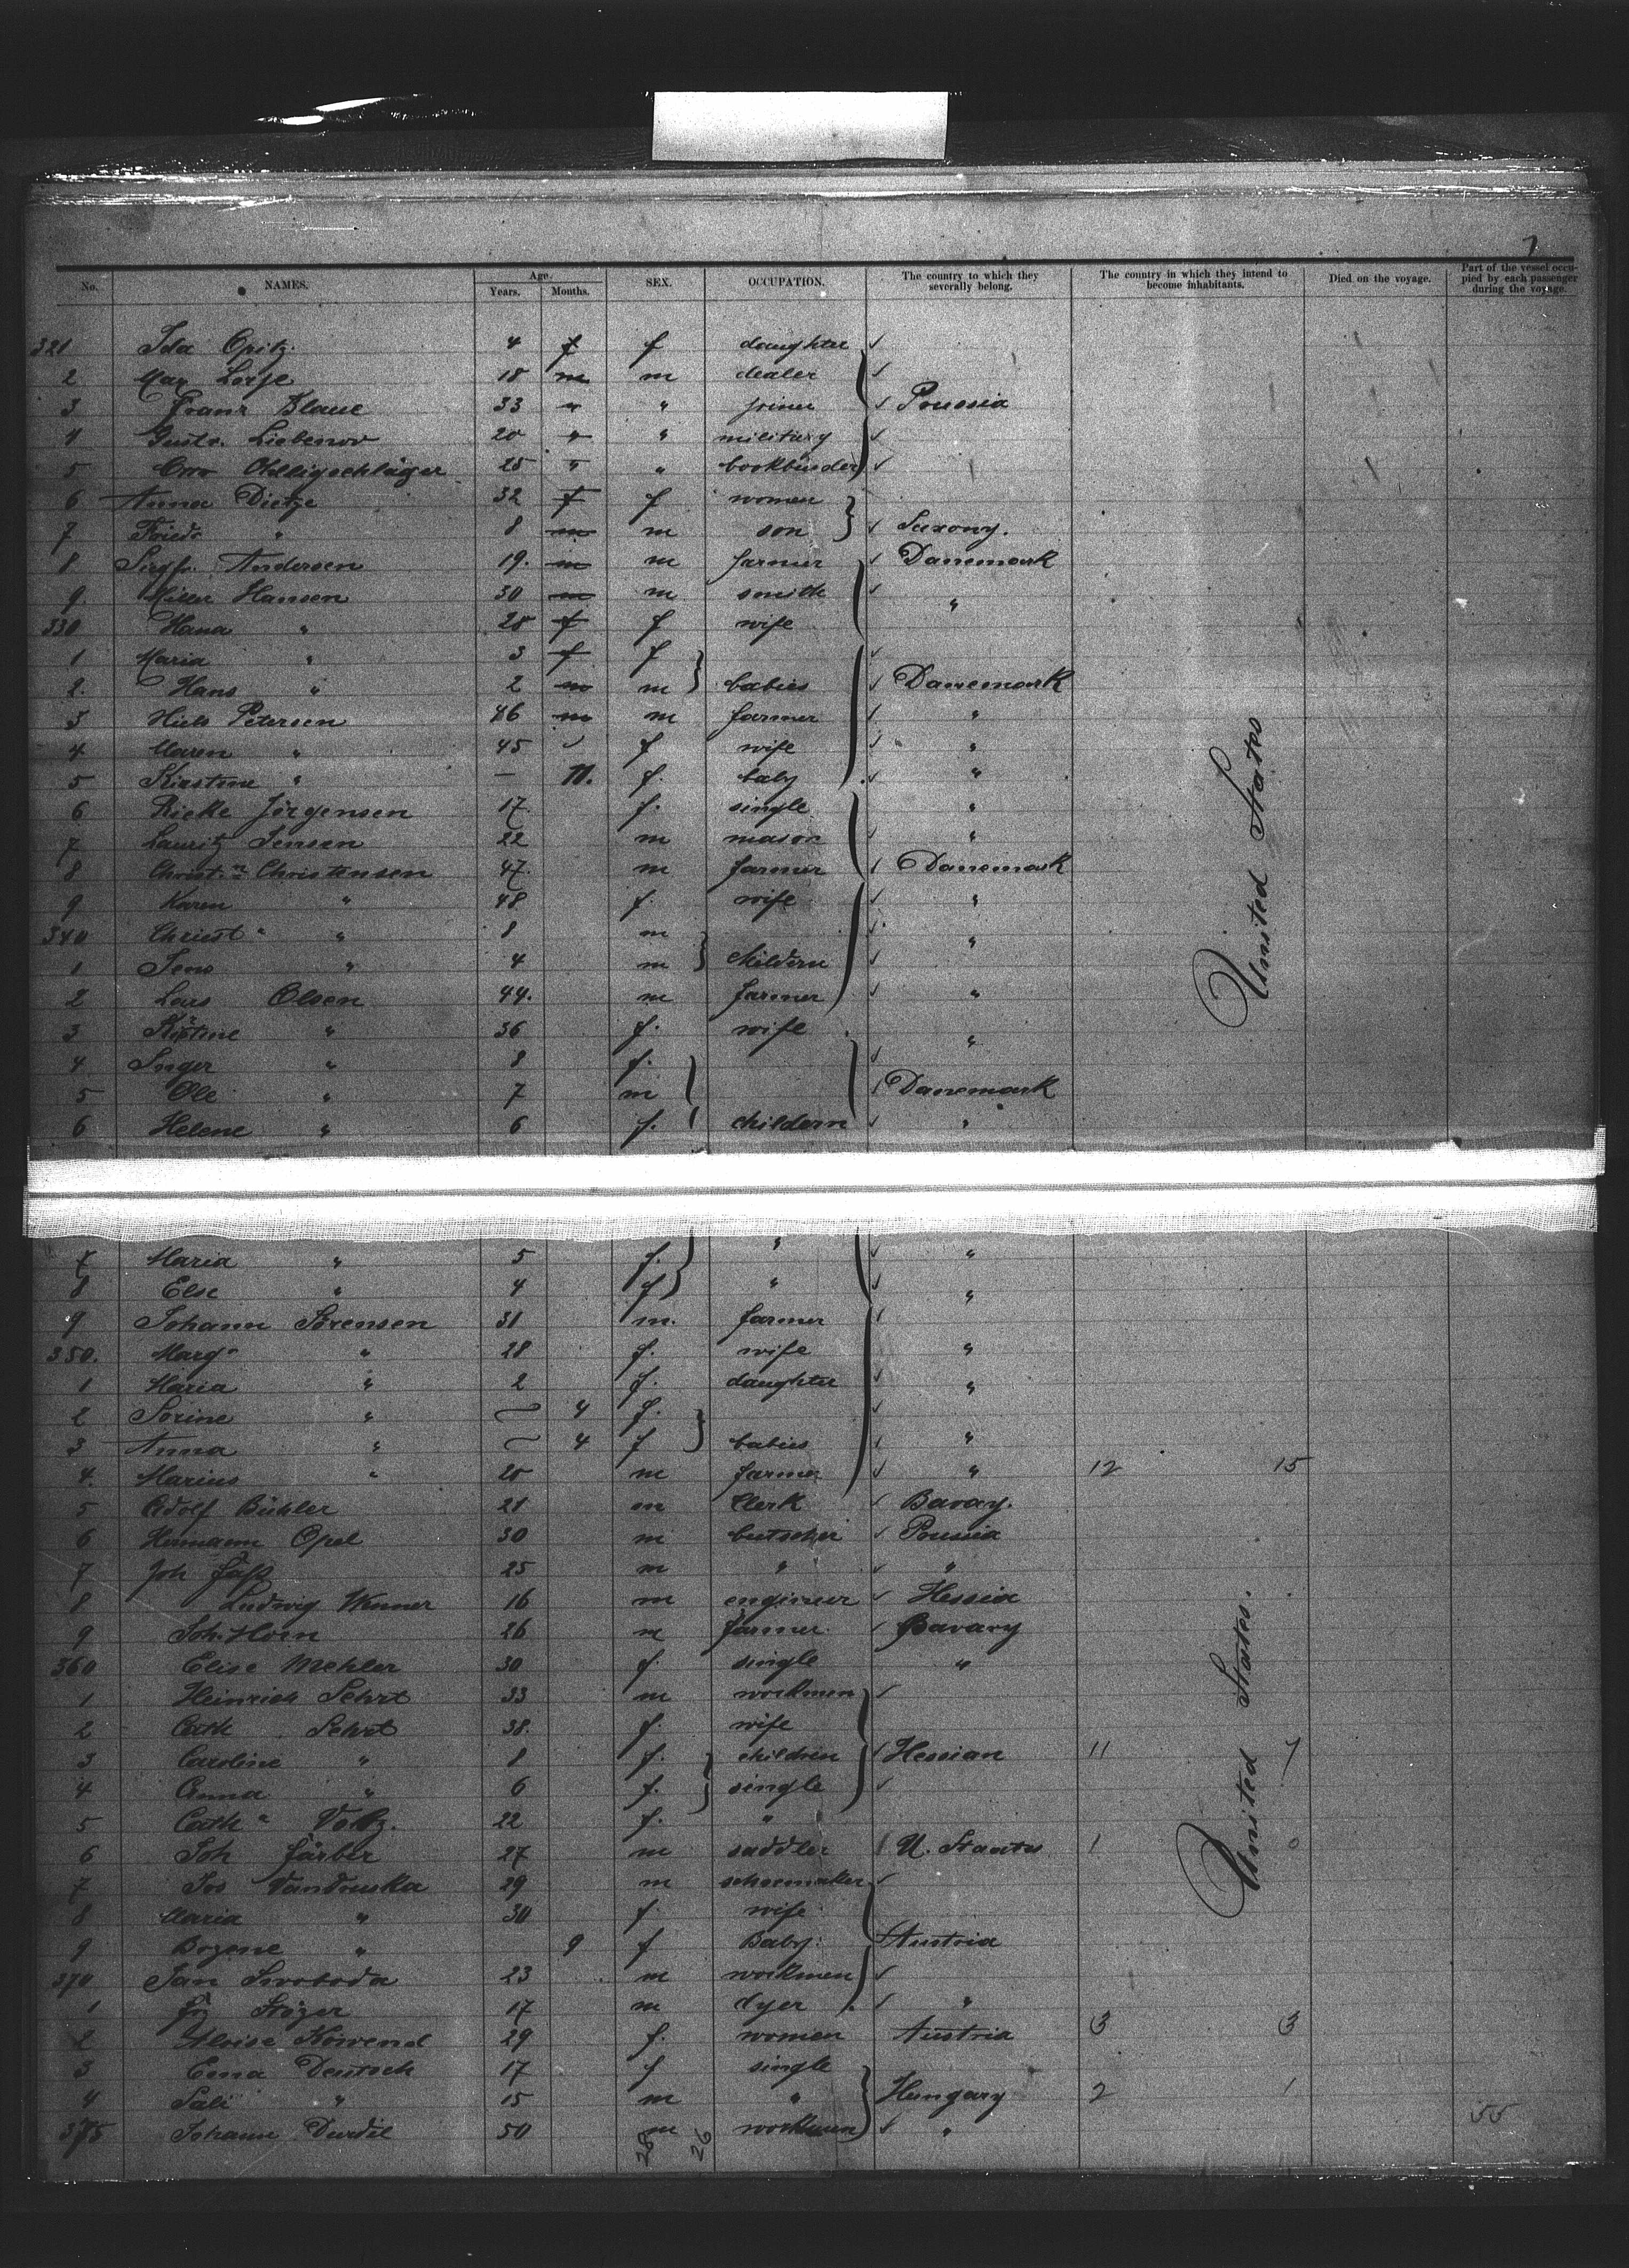 7
No. NAMES. Age. Years. Months. SEX. OCCUPATION. The country to which they severally belong. The country in which they intend to become inhabitants. Died on the voyage. Part of the vessel occupied by each passenger during the voyage.
321 Ida Opitz. 4 f f daughter ✓
2 Max 18 m m dealer ✓
3 Franz Blaue 33 " " joiner ✓ Prussia
4 Gustv. Liebenow 20 " " military ✓
5 Otto Ohlligschläger 25 " " bookbinder ✓
6 Anna Dietze 32 f f women
7 Friedr " 8 m m son ✓ Saxony.
8 Siegfr. Andersen 19. m m farmer ✓ Danemark
9 Hansen 30 m m smith ✓ "
330 Hana " 28 f f wife
1 Maria " 3 f f ✓
2. Hans " 2 m m babies ✓ Danemark
3 Niels Petersen 46 m m farmer ✓ "
4 Maren " 45 f wife ✓ "
5 Kirstine " — 11. f. baby ✓ "
6 Rieke Jörgensen 17. f. single "
7 Lauritz Jensen 22 m mason ✓ "
8 Christn Christensen 47. m farmer ✓ Danemark
9 Karen " 48 f. wife ✓ "
340 Christ " 8 m ✓ "
1 Jens " 4 m childern ✓
2 Lars Olsen 44. m farmer ✓ "
3 " 36 f. wife "
4 Inger " 8 f. ✓
5 Ole " 7 m Danemark
6 Helene " 6 f. childern ✓ "
7 Maria " 5 f. " ✓ "
8 Else " 4 f " ✓ "
9 Johann Sörensen 31 m. farmer ✓
350. Marg " 28 f. wife "
1 Maria " 2 f. daughter ✓ "
2 Sorine " 4 f. ✓
3 Anna " 4 f babies ✓ "
4. Marius " 20 m farmer ✓ " 12 15
5 Adolf Bühler 21 m Clerk ✓ Bavay.
6 Hermann Opel 30 m butscher ✓ Prussia
7 Joh Fäß 25 m " ✓ "
8 Ludwig Wenner 16 m engineer ✓ Hessia
9 Joh. Horn 26 m farmer. ✓ Bavary
360 Elise Mehler 30 f. single "
1 Heinrich Sehrt 33 m workmen ✓
2 Cath Sehrt 38. f. wife
3 Caroline " 8 f. children Hessian 11 7
4 Anna " 6 f. single ✓
5 Cath " Voltz. 22 f. "
6 Joh Färber 27 m saddler U. Staates 1 0
7 Jos Vandruska 29 m schoemaker ✓
8 Maria " 30 f. wife
9 Bozene " 9 f Baby. Austria
370 Jan Svoboda 23 m workmen ✓
1 Stözer 17 m dyer ✓ "
2 Aloise Kowend 29 f. women Austria 3 3
3 Ema Deutsch 17 f single
4 Sali " 15 m " Hungary 2 1
375 Johann Durdil 50 m workmen ✓ "
United States
United States.
28 26
55